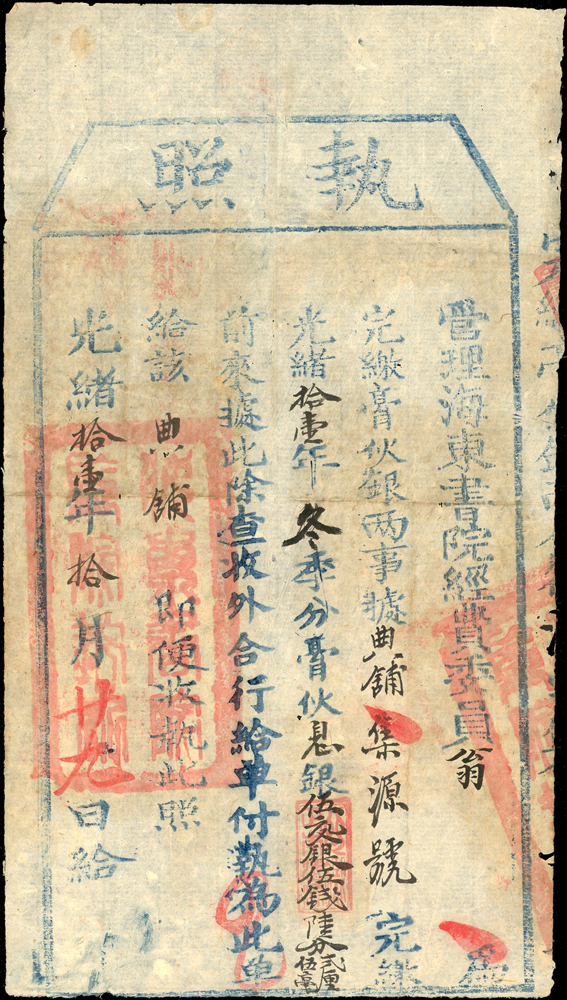 執照
管理海東書院經費委員翁 為
完繳膏伙銀两事據典舖集源號完繳
光緒拾壹年冬季分膏伙息銀伍元銀伍錢陸分貳厘伍毫
前來據此除查收外合行給單付執為此單
給該典舖即便收執此照
光緒拾壹年拾月廿九日給